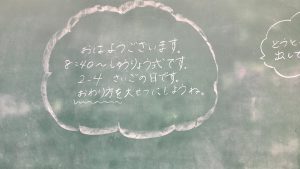 おはようございます。
8:40～しゅうりょう式です。
2-4 さいごの日です。
おわり方を大せつにしようね。
とうと
出して